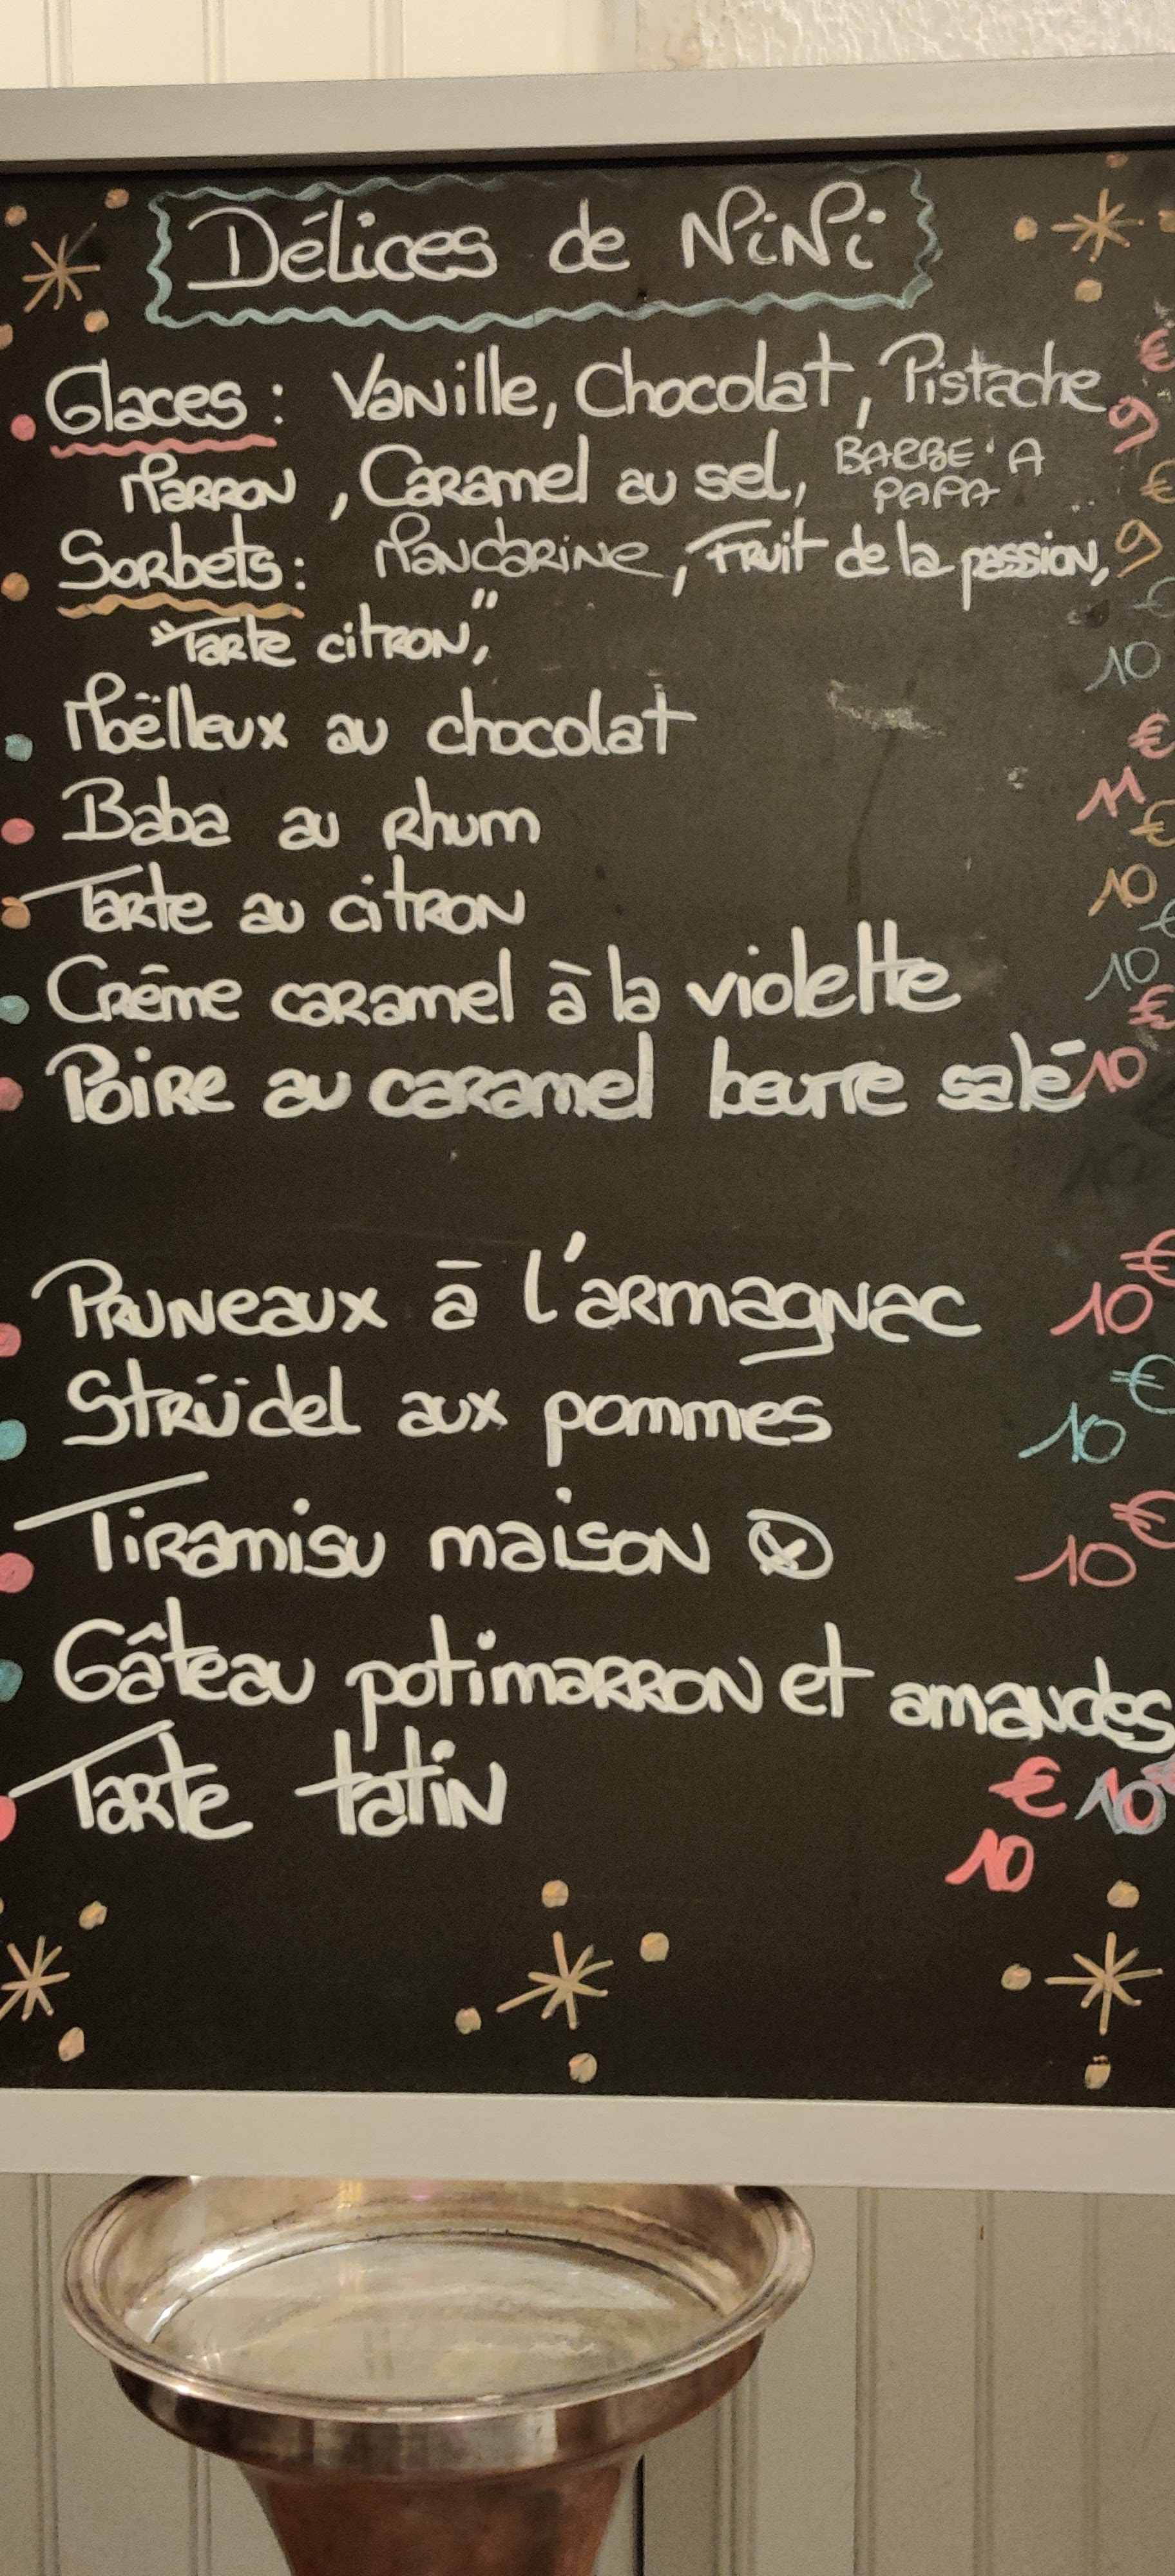 Délices de NiNi
Glaces : Vanille, Chocolat, Pistache 9 €
Marron, Caramel au sel, BARBE' A PAPA
Sorbets : Mandarine, Fruit de la passion, 9 €
"Tarte citron",
Moëlleux au chocolat 10 €
Baba au Rhum 11 €
Tarte au citron 10 €
Crême caramel à la violette 10 €
Poire au caramel beurre salé 10 €
Pruneaux à l'armagnac 10 €
Strüdel aux pommes 10 €
Tiramisu maison 10 €
Gâteau potimarron et amandes 10 €
Tarte tatin 10 €